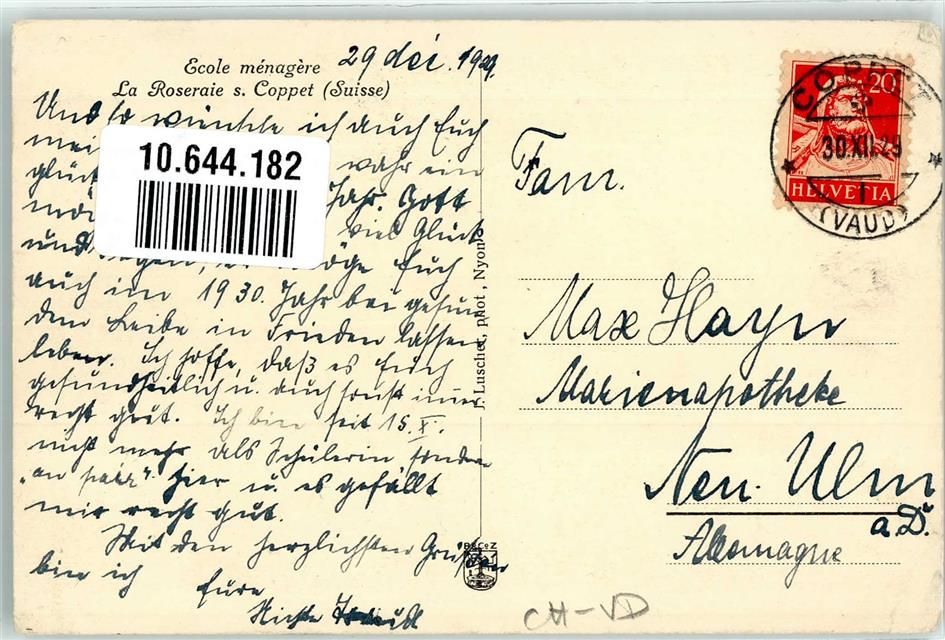 Ecole ménagère
La Roseraie s. Coppet (Suisse)
29 déc. 1929.
Und so wünsche ich auch Euch
mei
glüc wahr ein
Jahr. Gott
mö viel Glück
und Segen, möge Euch
auch im 1930. Jahr bei gesun
dem Leibe in Frieden lassen
leben. Ich hoffe, daß es Euch
gesundheitlich u. auch sonst immer
recht gut. Ich bin seit 15. X.
nicht mehr als Schülerin sondern
"au pair" hier u. es gefällt
mir recht gut.
Mit den herzlichsten Grüßen
bin ich Eure
Nichte
10.644.182
J. Luscher, phot, Nyon
Fam.
Max Hayn
Marienapotheke
Neu-Ulm
a.D.
Allemagne
COPPET
30.XII.29
(VAUD)
20
HELVETIA
CH-VD